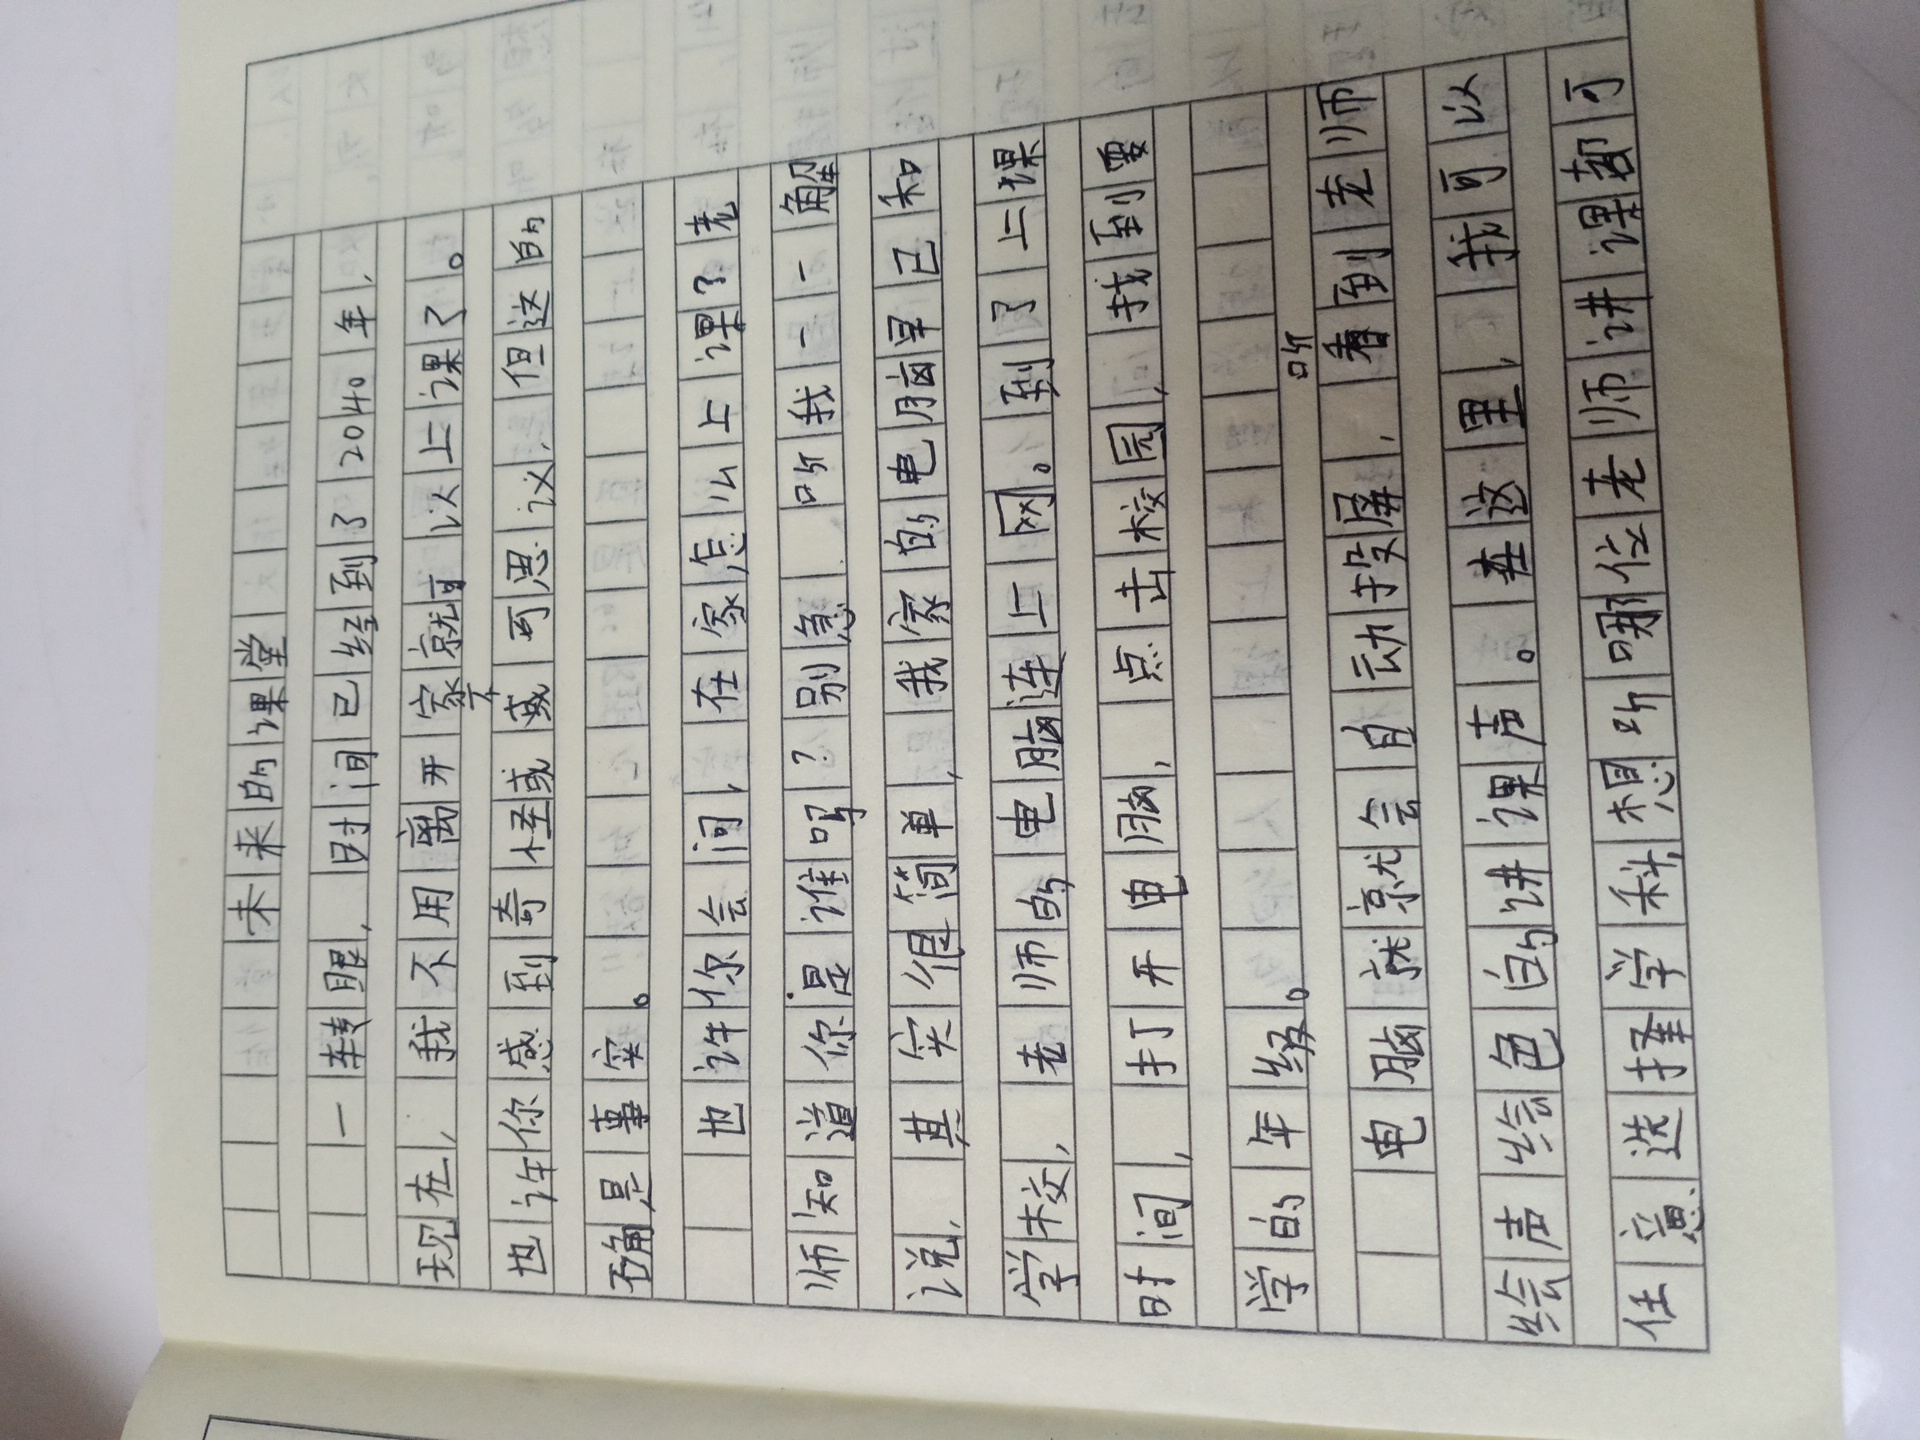 未来的课堂
一转眼，时间已经到了2040年，
现在，我不用离开家就可以上课了。
也许你感到奇怪或感不可思议，但这的
确是事实。
也许你会问，在家怎么上课？老
师知道你是谁吗？别急 听我一一解
说，其实很简单，我家的电脑早已和
学校，老师的电脑连上网。到了上课
时间，打开电脑，点击校园，找到要
学的年级。
电脑就会自动投屏，看到听老师
绘声绘色的讲课声。在这里，我可以
任意选择学科，想听哪位老师讲课都可